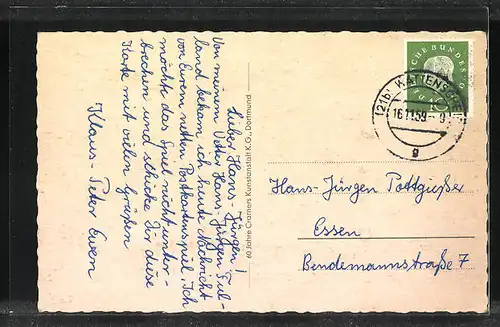 Lieber Hans-Jürgen!
Von meinem Vetter Hans-Jürgen Ful-
land bekam ich heute Nachricht
von Eurem netten Postkartenspiel. Ich
möchte das Spiel nicht unter-
brechen und schicke Dir diese
Karte mit vielen Grüßen
Klaus-Peter Ewen
60 Jahre Cramers Kunstanstalt K.G., Dortmund
SCHE BUNDESPO
10
(21b) KATTENS
16.11.59
g
Hans-Jürgen Pottgießer
Essen
Bendemannstraße 7